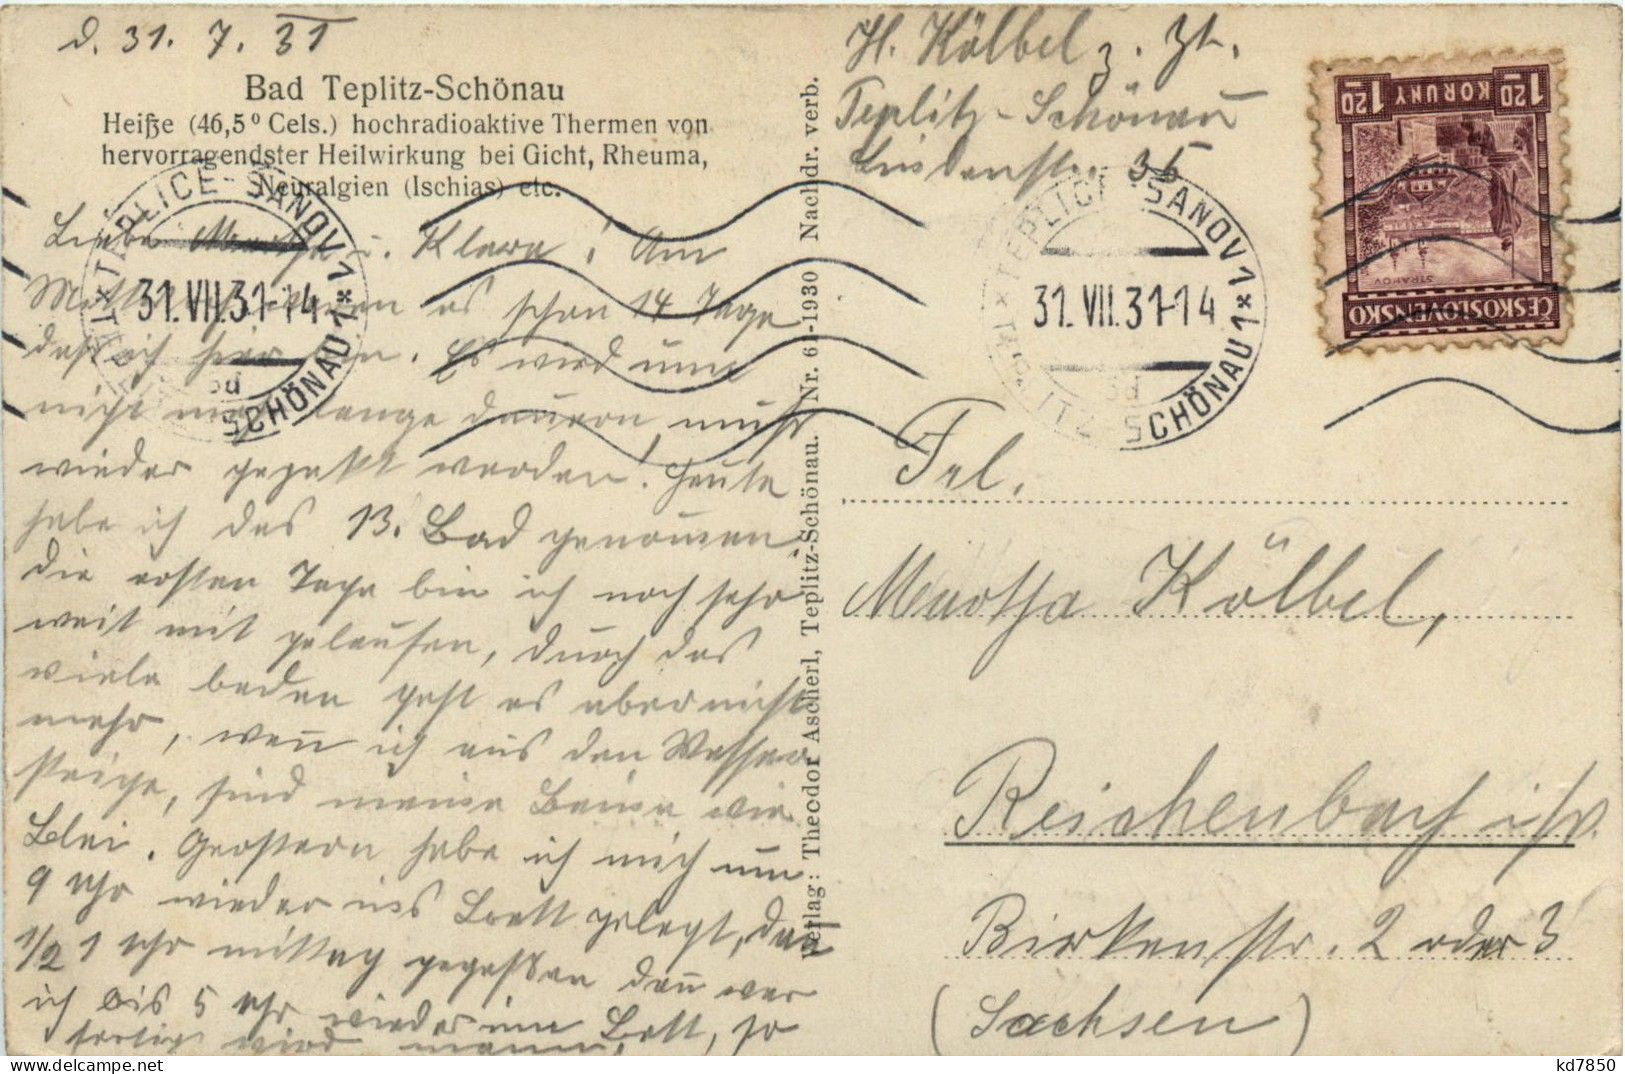 d. 31. 7. 31
Bad Teplitz-Schönau
Heiße (46,5⁰ Cels.) hochradioaktive Thermen von
hervorragendster Heilwirkung bei Gicht, Rheuma,
Neuralgien (Ischias) etc.
Liebe Martha u. Klara! Am
es schon 14 Tage
daß ich hier bin. Es wird nun
nicht mehr lange dauern muß
wieder gepakt werden! Heute
habe ich das 13. Bad genom̄en,
die ersten Tage bin ich noch sehr
weit mit gelaufen, durch das
viele baden geht es aber nicht
mehr, wen̄ ich aus den Wasser
steige, sind meine Beine wie
Blei. Gestern habe ich mich um
9 Uhr wieder ins Bett gelegt, dan̄
1/2 1 Uhr mittag gegessen dan̄ war
ich bis 5 Uhr wieder im Bett, so
fertig wird mann.
Verlag: Theodor Ascherl, Teplitz-Schönau. Nr. 61-1930 Nachdr. verb.
H. Kölbel z. Zt.
Teplitz-Schönau
Lindenstr. 35
TEPLICE-ŠANOV 1
31.VII.31-14
5d
TEPLITZ-SCHÖNAU 1
TEPLICE-ŠANOV 1
31.VII.31-14
5d
TEPLITZ-SCHÖNAU 1
1.20 KORUNY 1.20
STRAHOV
ČESKOSLOVENSKO
Frl.
Martha Kölbel,
Reichenbach i/V.
Birkenstr. 2 oder 3
(Sachsen)
kd7850